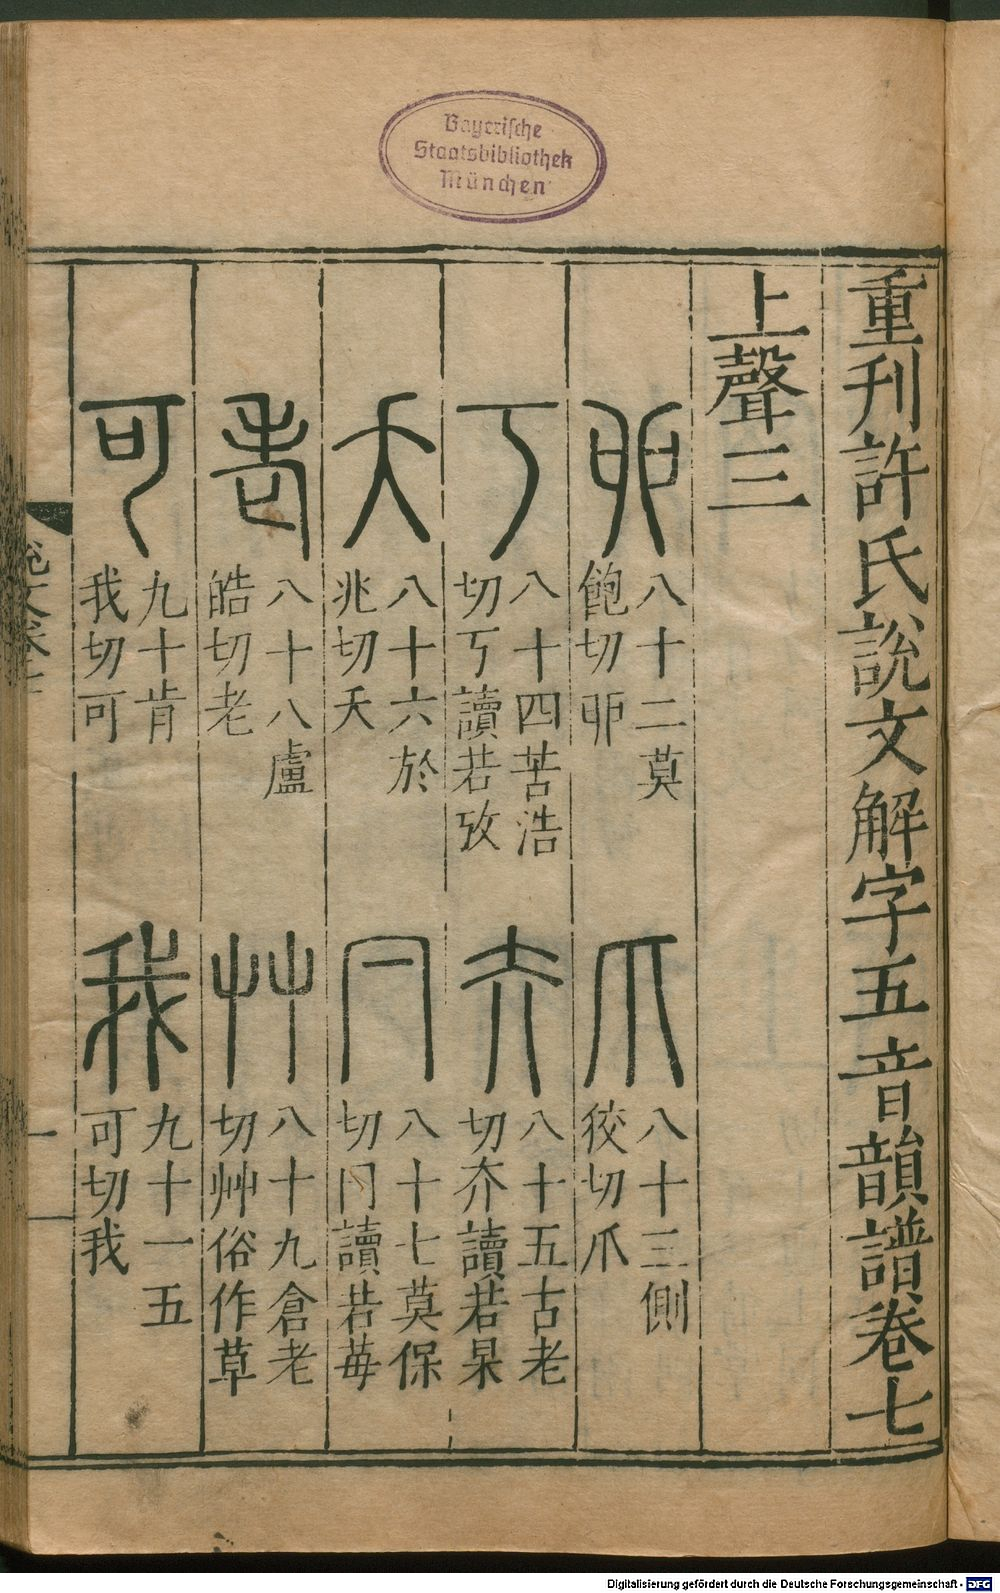 Bayerische
Staatsbibliothek
München
重刊許氏說文解字五音韻譜卷七
上聲三
丣 八十二莫
飽切丣
爪 八十三側
狡切爪
丂 八十四苦浩
切丂讀若攷
夰 八十五古老
切夰讀若杲
夭 八十六於
兆切夭
冃 八十七莫保
切冃讀若苺
老 八十八盧
皓切老
艸 八十九倉老
切艸俗作草
可 九十肯
我切可
我 九十一五
可切我
說文卷七
一
Digitalisierung gefördert durch die Deutsche Forschungsgemeinschaft - DFG